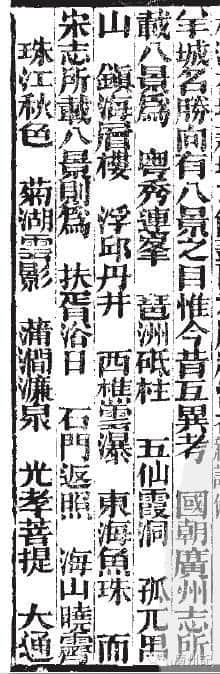 羊城名勝向有八景之目惟今昔互異考 國朝廣州志所
載八景爲 粤秀連峯 琶洲砥柱 五仙霞洞 孤兀禺
山 鎮海層樓 浮邱丹井 西樵雲瀑 東海魚珠 而
宋志所載八景則爲 扶胥浴日 石門返照 海山曉霽
珠江秋色 菊湖雲影 蒲澗濂泉 光孝菩提 大通